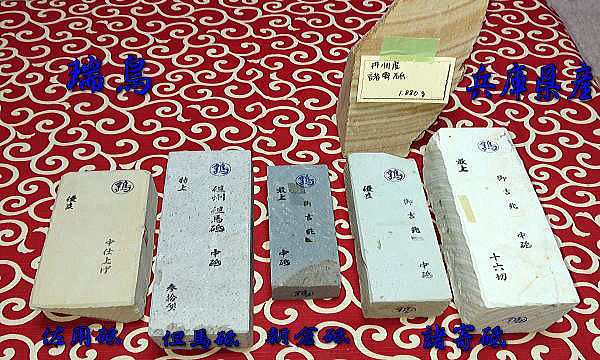 瑞鳥
兵庫県産
丹州産
諸寄砥
1.880g
優良
中仕上げ
特上
但州 但馬砥
中砥
最上
御吉兆
中砥
優良
御吉兆
中砥
最上
御吉兆
十六切
佐用砥
但馬砥
朝倉砥
諸寄砥